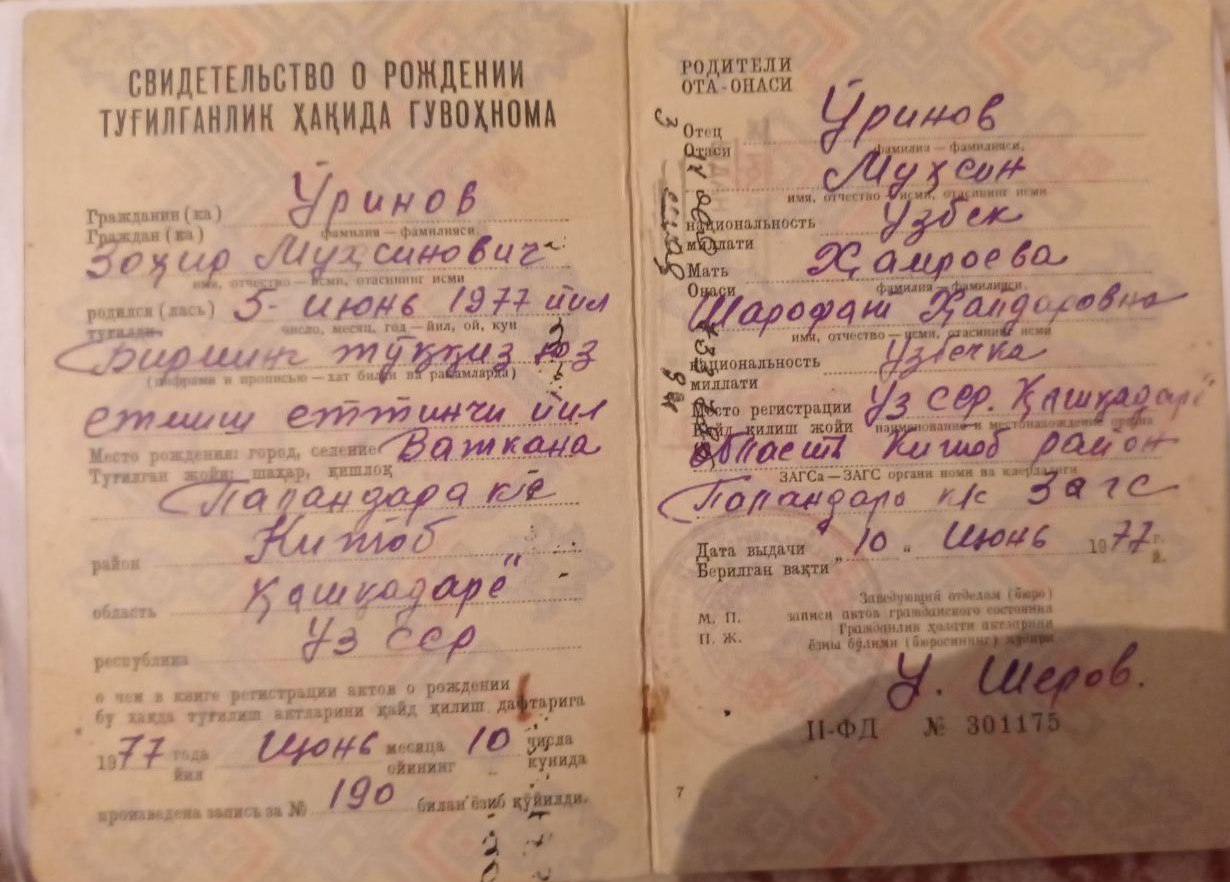 СВИДЕТЕЛЬСТВО О РОЖДЕНИИ
ТУҒИЛГАНЛИК ҲАҚИДА ГУВОҲНОМА
Гражданин (ка) Ўринов
Граждан (ка) фамилия — фамилияси,
Зоҳир Муҳсинович
имя, отчество — исми, отасининг исми
родился (лась) 5- июнь 1977 йил
туғилди. число, месяц, год — йил, ой, кун
Бирминг тўққиз юз
(цифрами и прописью — хат билан ва рақамларда)
етмиш еттинчи йил
Место рождения: город, селение Варкана
Туғилган жойи: шаҳар, қишлоқ
Папандара к/с
район Китоб
область Қашқадарё
республика Уз ССР
о чем в книге регистрации актов о рождении
бу ҳақда туғилиш актларини қайд қилиш дафтарига
1977 года Июнь месяца 10 числа
йил ойининг кунида
произведена запись за № 190 билан ёзиб қўйилди.
РОДИТЕЛИ
ОТА-ОНАСИ
Отец Ўринов
Отаси фамилия — фамилияси,
Муҳсин
имя, отчество — исми, отасининг исми
национальность Узбек
миллати
Мать Ҳамроева
Онаси фамилия — фамилияси,
Шарофат Ҳайдаровна
имя, отчество — исми, отасининг исми
национальность Узбечка
миллати
Место регистрации Уз ССР. Қашқадарё
Қайд қилиш жойи наименование и местонахождение органа
область Китоб район
ЗАГСа — ЗАГС органи номи ва
Папандара к/с ЗАГС
Дата выдачи „ 10 “ Июнь 1977 г.
Берилган вақти й.
Заведующий отделом (бюро)
М. П. записи актов гражданского состояния
П. Ж. Гражданлик ҳолати актларини
ёзиш бўлими (бюросининг) мудири
У. Шеров.
II-ФД № 301175
7